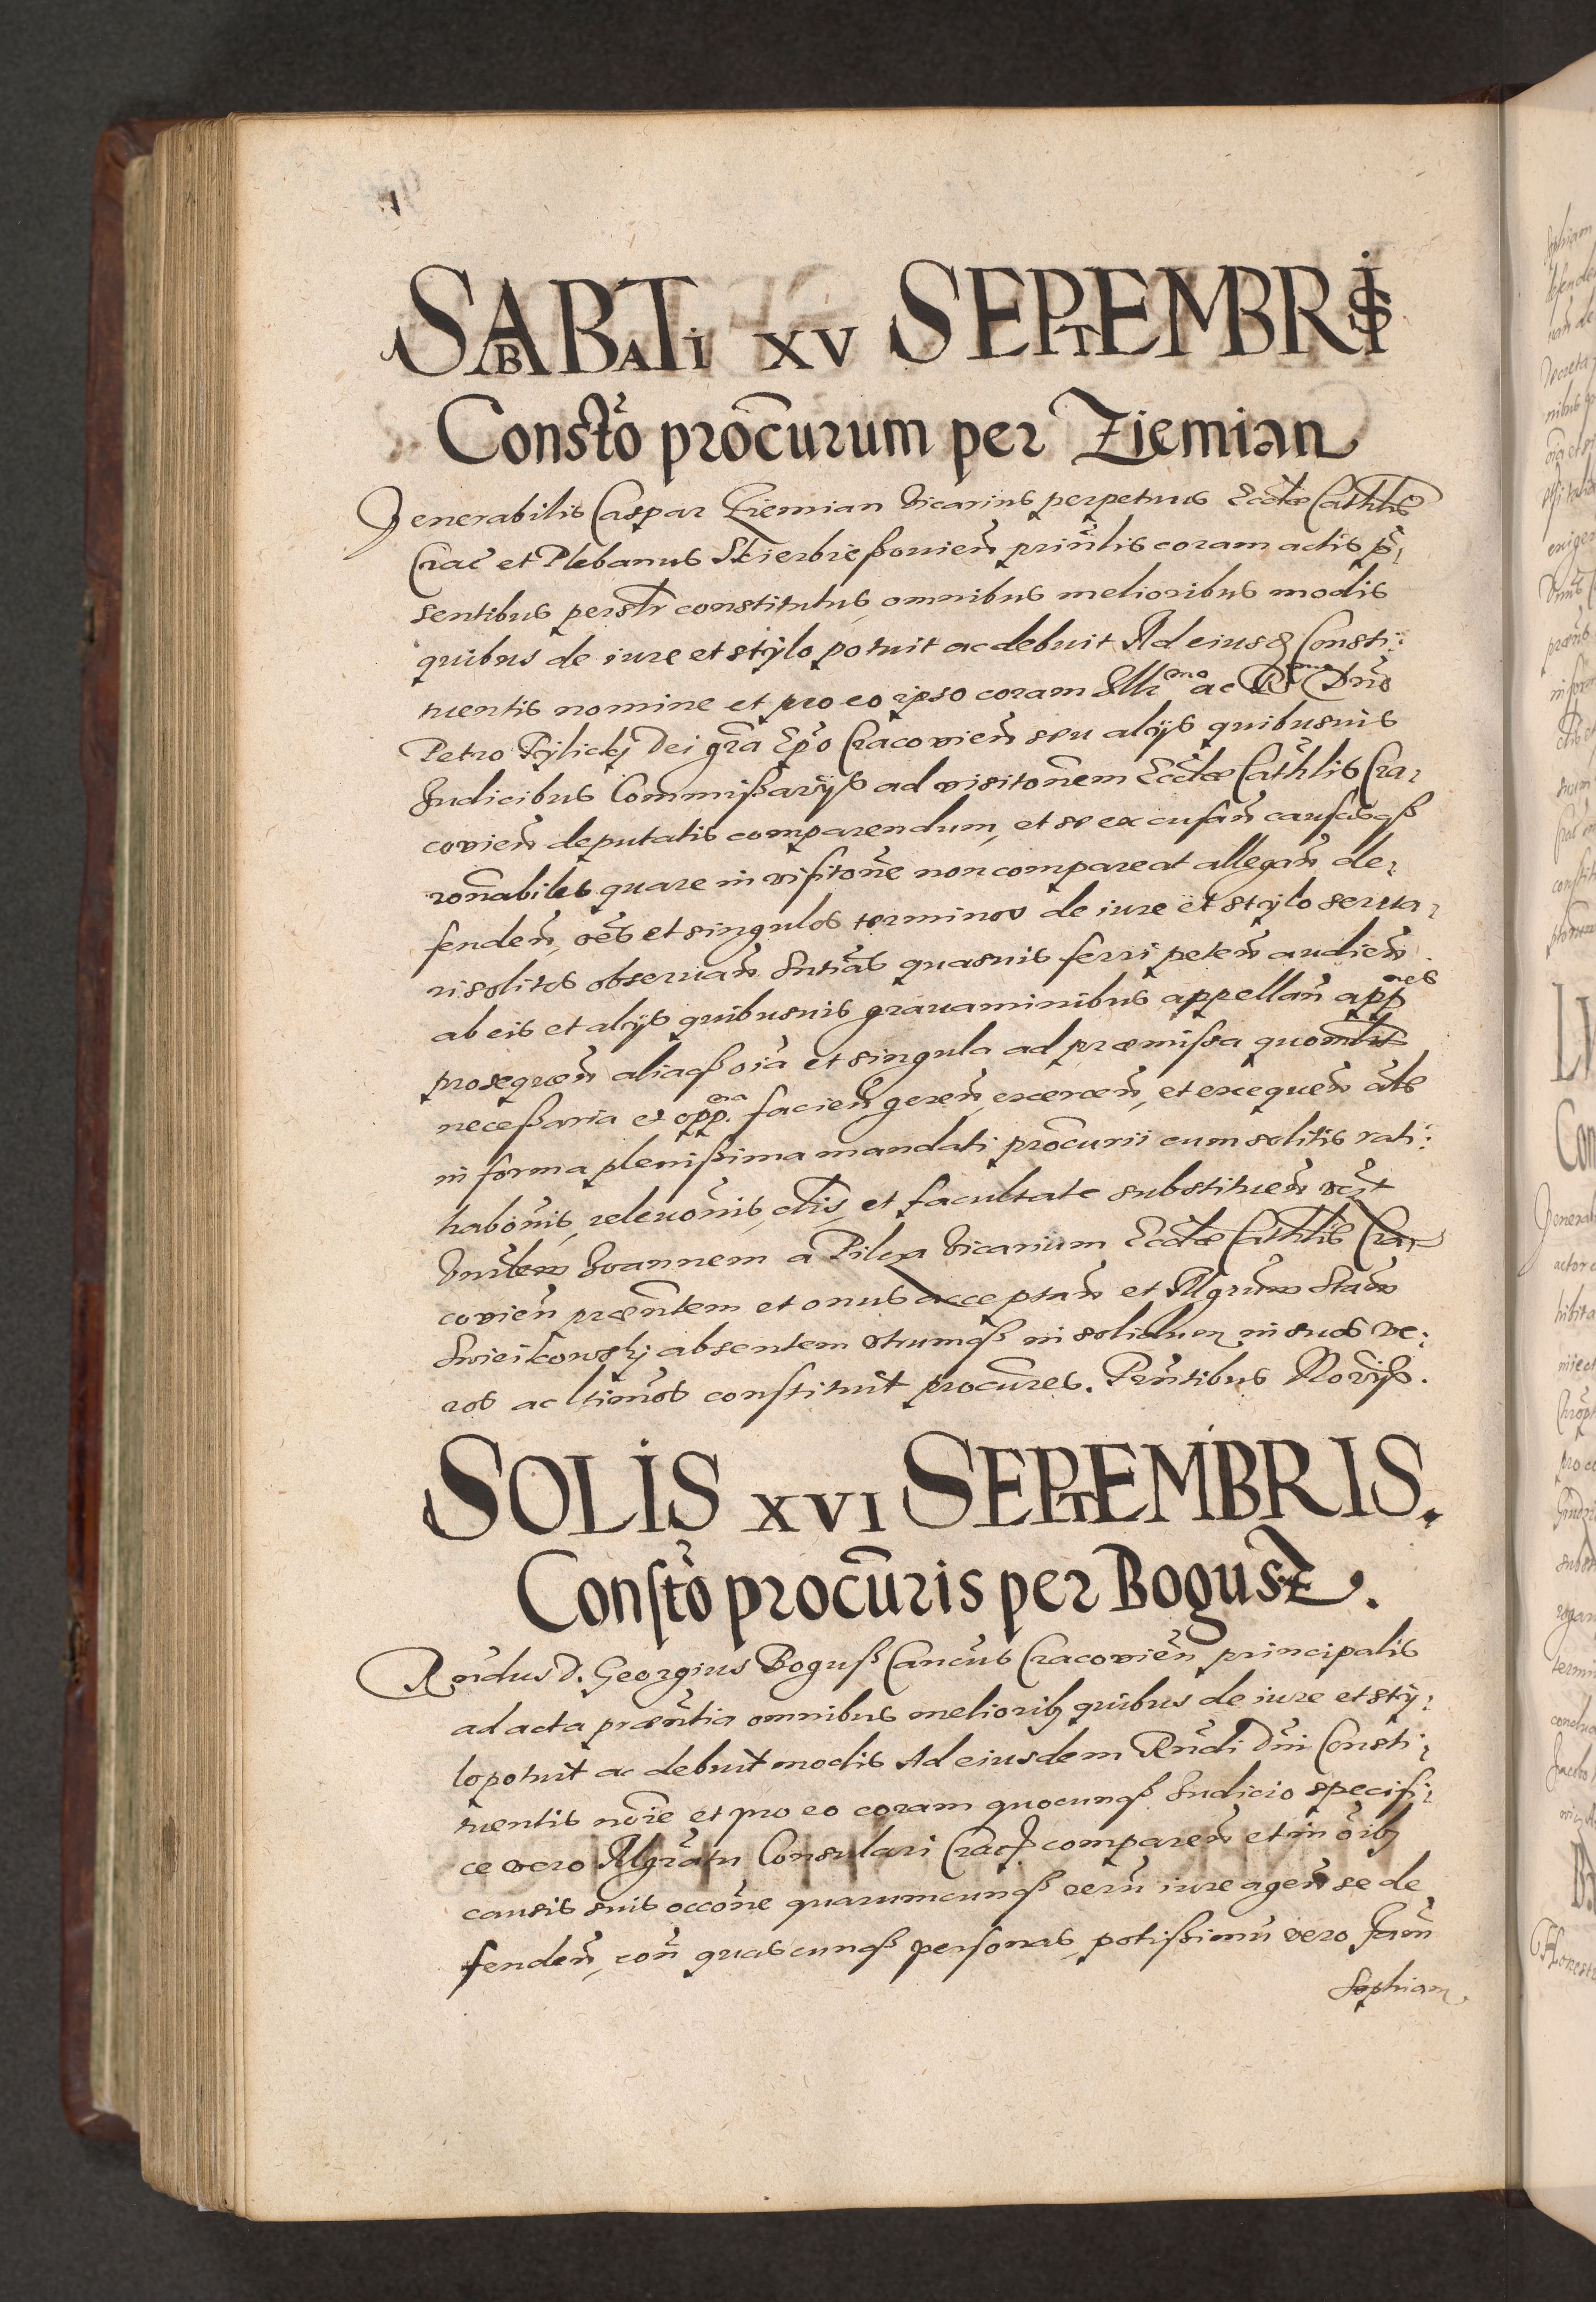 SABBATI XV SEPTEMBRIS
Constō procurum per Ziemian
Venerabilis Caspar Ziemian Vicarius perpetuus Eccłæ Cathłis
Crac̄ et Plebanus Skierbießouien̄ prin̄lis coram actis p̄n̄
sentibus persłr constitutus, omnibus melioribus modis
quibus de iure et stylo potuit ac debuit Ad eiusd Consti:
tuentis nomine et pro eo ipso coram Illr̄mo ac Rmo Dn̄o
Petro Tylicky Dei gr̄a Ep̄o Cracovien̄ seu alijs quibusuis
Judicibus Commißarijs ad visitōnem Eccłæ Cathłis Cra:
covien̄ deputatis comparendum, et se excusan̄ causasqȝ
rōnabiles quare in visitōne non compareat allegan̄ de:
fenden̄, oēs et singulos terminos de iure et stylo serua:
ri solitos obseruan̄ Sn̄tias quasuis ferri peten̄ audien̄
ab eis et alijs quibusuis grauaminibus appellan̄ app̄nes
prosequen̄ aliaqȝ oīa et singula ad præmissa quomłt
neceßaria et opp.na facien̄ geren̄, exercen̄, et exequen̄ ałs
in forma plenißima mandati procurii cum solitis rati:
habōnis, relevōnis, cłis, et facultate substituen̄
Vn̄łem Joannem a Pilcza Vicarium Eccłæ Cathłis Cra:
covien̄ præn̄tem et onus acceptan̄ et Mgrum Stan̄
Swieikowskj absentem utrumqȝ in solidum in suos ve:
ros ac ltimos constituit procures. Prn̄tibus Nōrijs.
SOLIS XVI SEPTEMBRIS.
Constō procūris per Bogusz.
Rn̄dus D. Georgius Boguß Canc̄us Cracovien̄ principalis
ad acta præn̄tia omnibus meliorib quibus de iure et sty:
lo potuit ac debuit modis Ad eiusdem Rn̄di Dn̄i Consti:
tuentis nōie et pro eo coram quocunqȝ Judicio specifi:
ce vero Mgrātu Consulari Crac comparen̄ et in ōib
causis suis occōne quarumcunqȝ rerū iure agen̄ se de
fenden̄, con̄ quascunqȝ personas, potißimū vero Fam̄
Sophiam